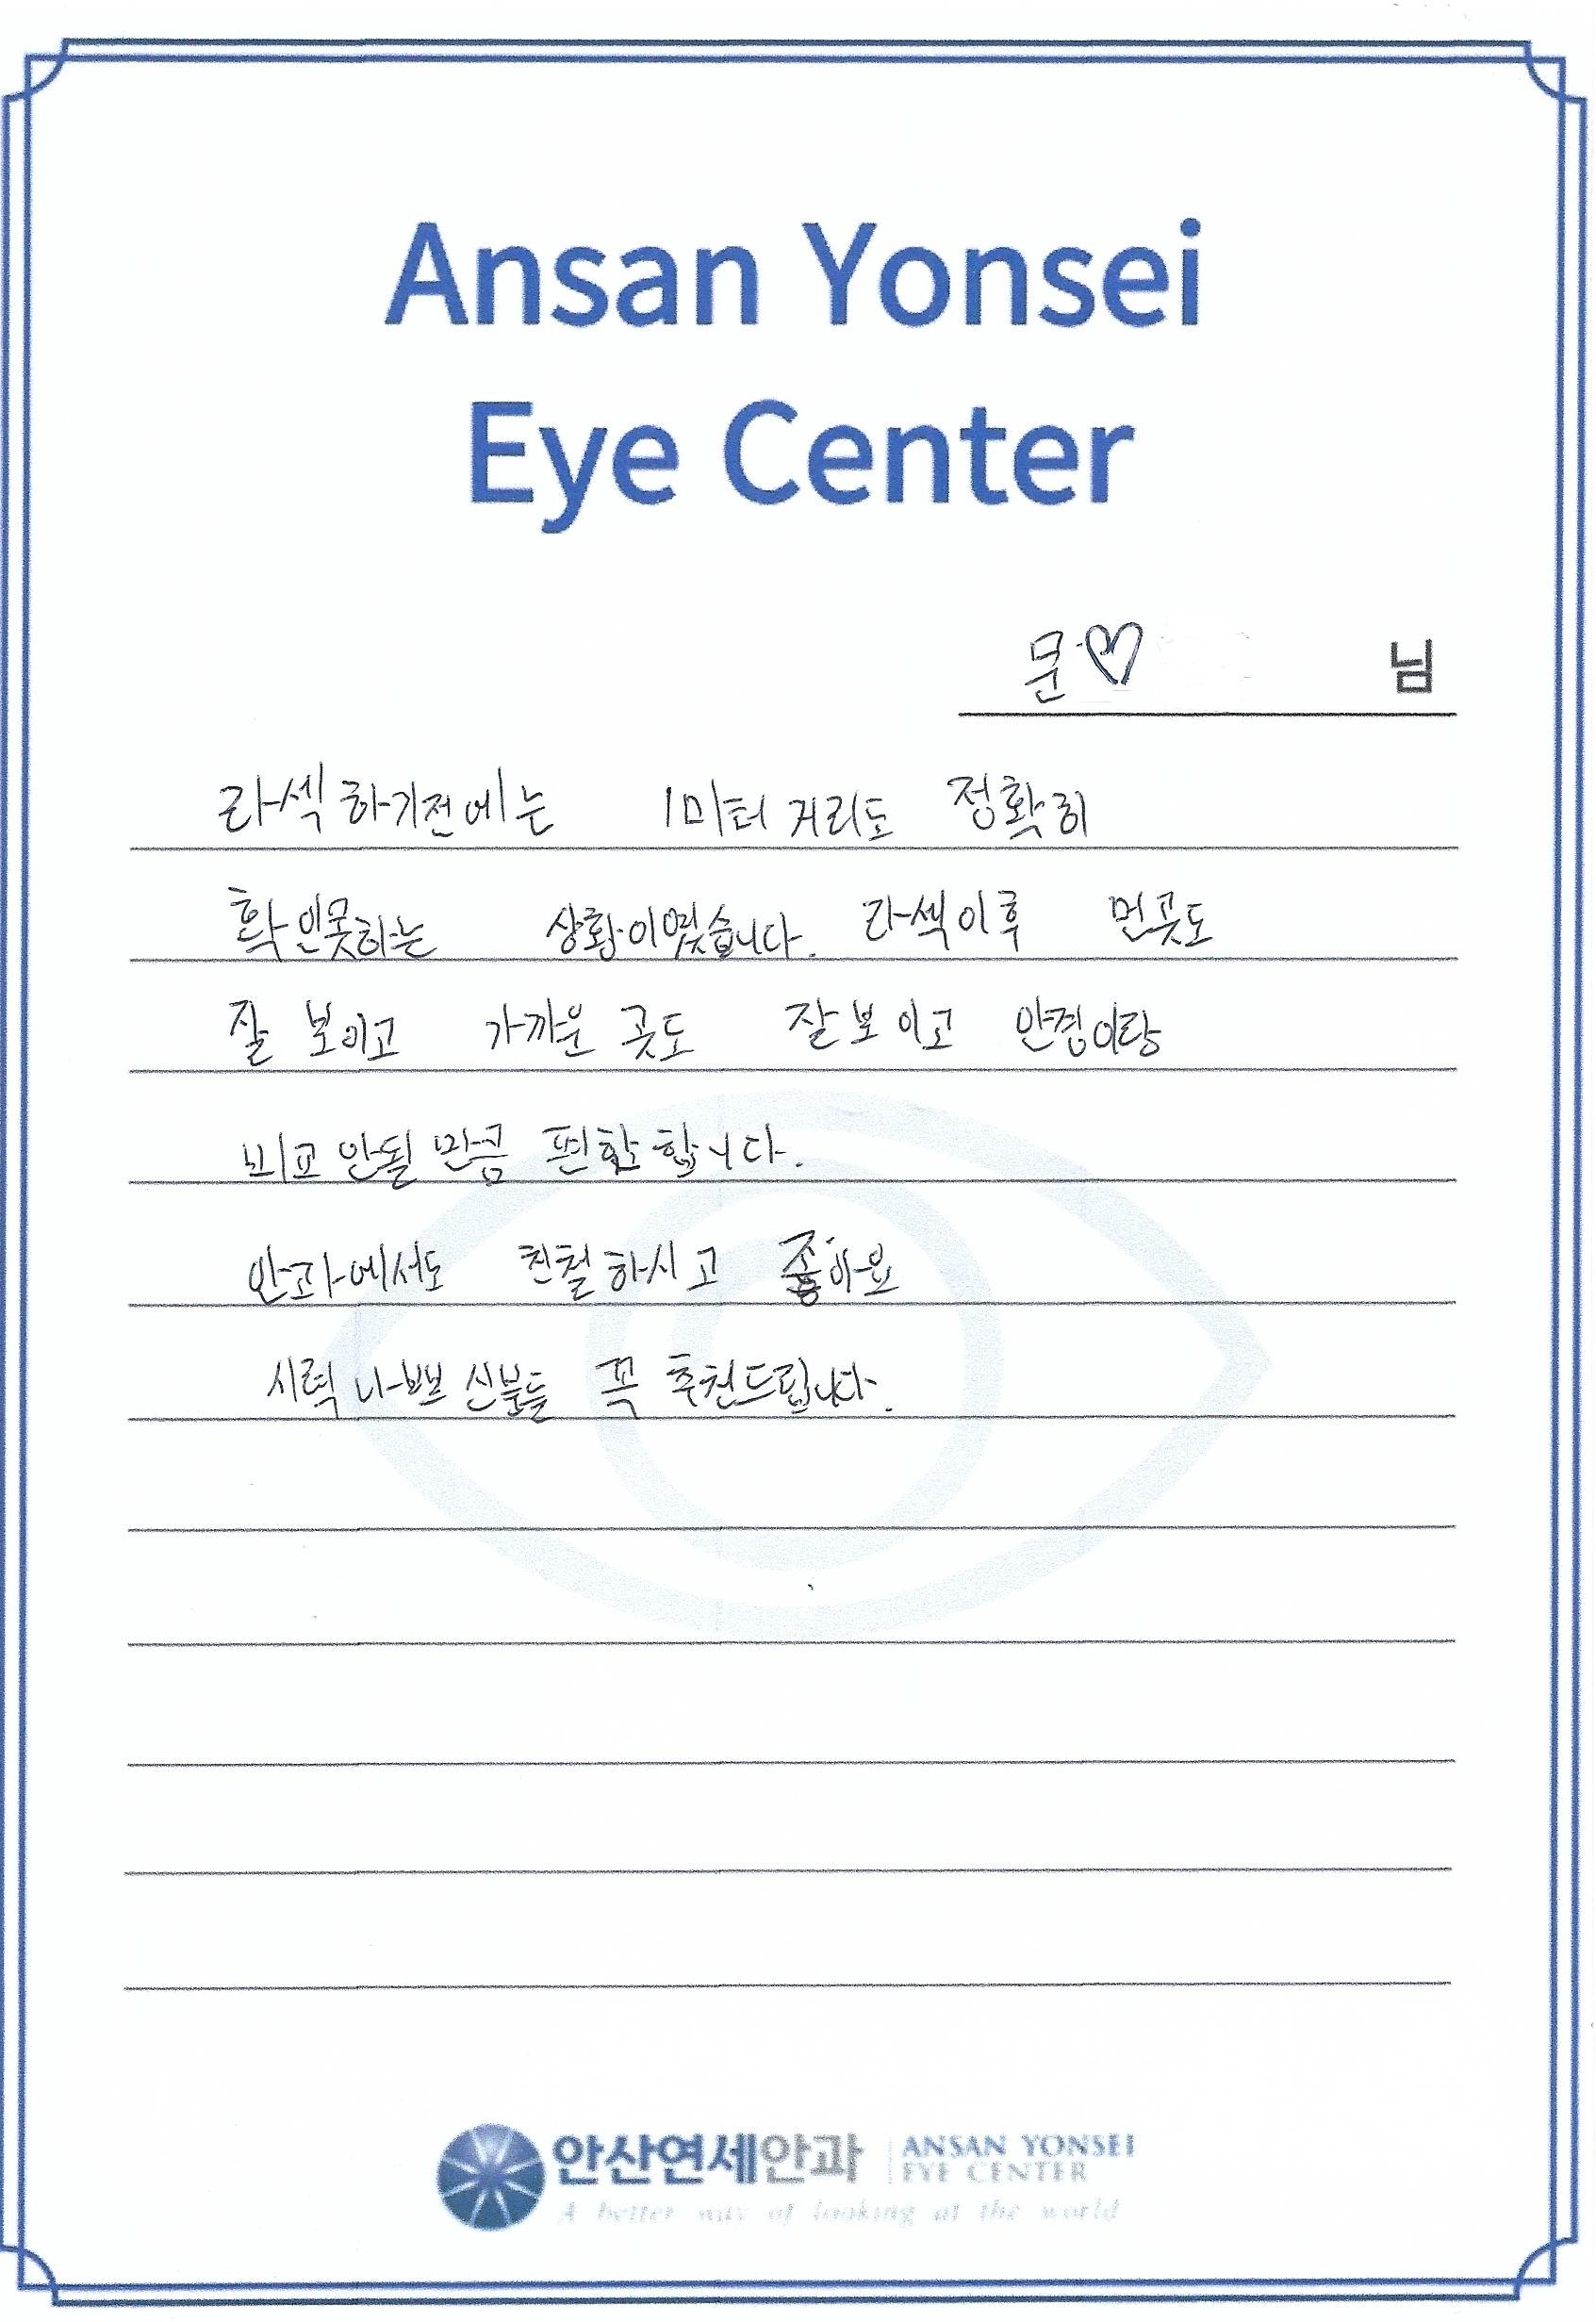 Ansan Yonsei
Eye Center
문♡ 님
라섹하기전에는 1미터 거리도 정확히
확인못하는 상황이였습니다. 라섹이후 먼곳도
잘 보이고 가까운 곳도 잘보이고 안경이랑
비교 안될 만큼 편합합니다.
안과에서도 친절하시고 좋아요
시력 나쁘신분들 꼭 추천드립니다.
안산연세안과 ANSAN YONSEI
EYE CENTER
A better way of looking at the world